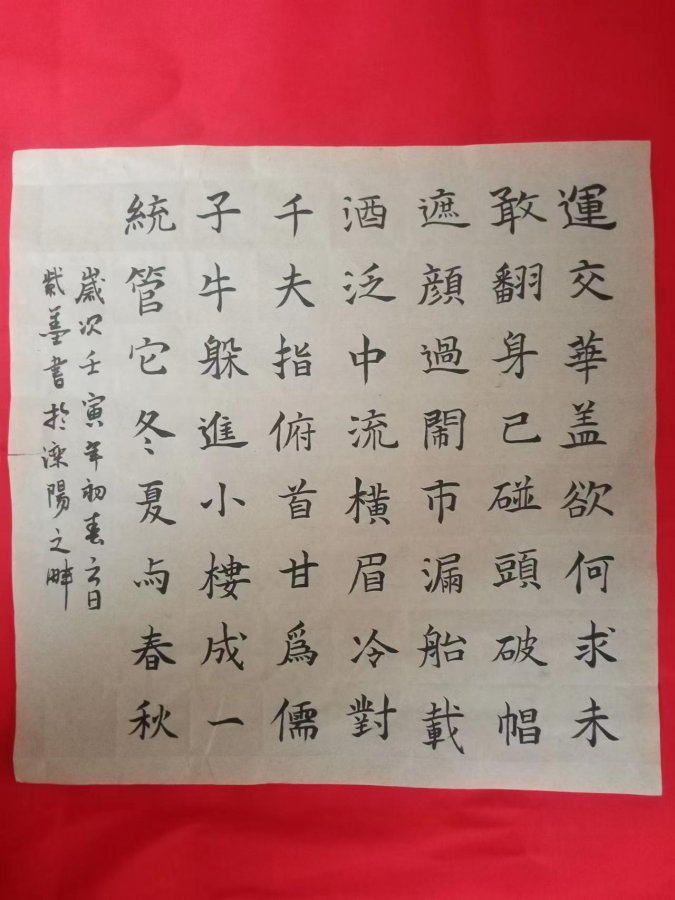 運交華盖欲何求未
敢翻身已碰頭破帽
遮顔過鬧市漏船載
酒泛中流橫眉冷對
千夫指俯首甘爲儒
子牛躲進小樓成一
統管它冬夏与春秋
歲次壬寅年初春六日
書於陽之畔